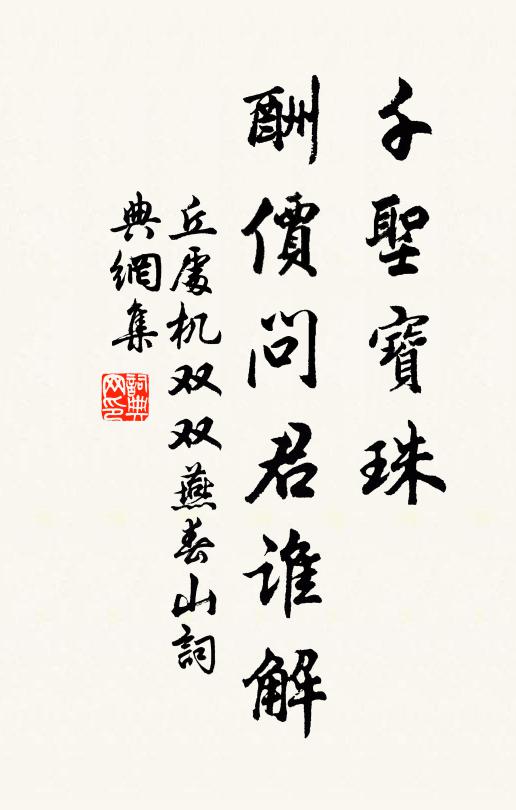 千聖寳珠
酬價問君誰解
丘處机双双燕春山詞
典網集
詞典
网印